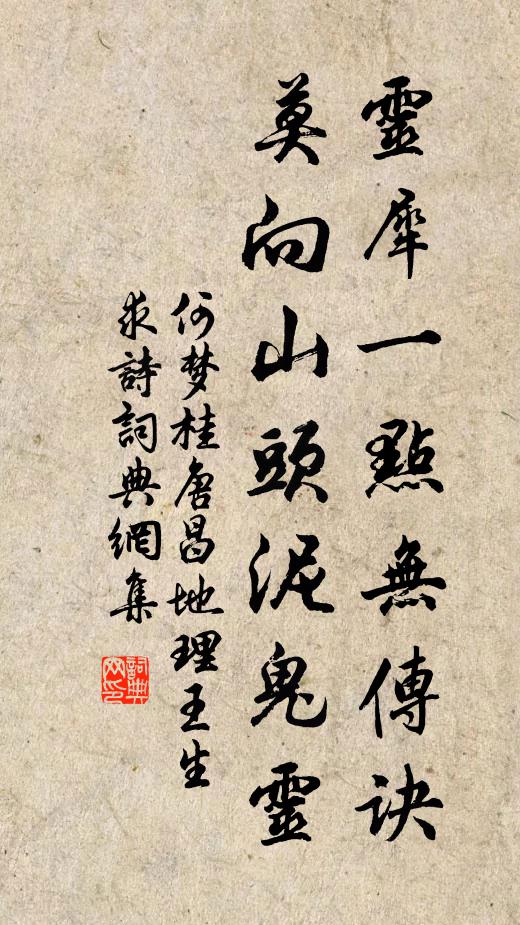 靈犀一點無傳訣
莫向山頭泥鬼靈
何梦桂唐昌地理王生
求詩詞典網集
詞典
网印